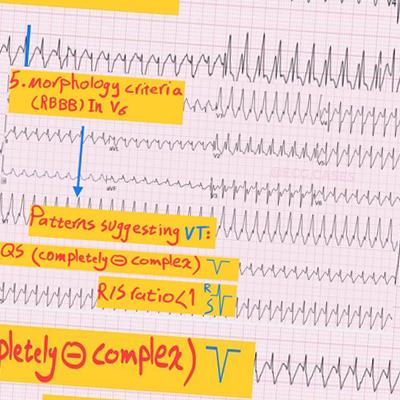 V4
5. morphology criteria
(RBBB) In V6
aVL
V2
V5
@ECG.CASES
aVF
Patterns suggesting VT:
QS (completely ⊖ complex)
R/S ratio<1 R
S
pletely ⊖ complex)